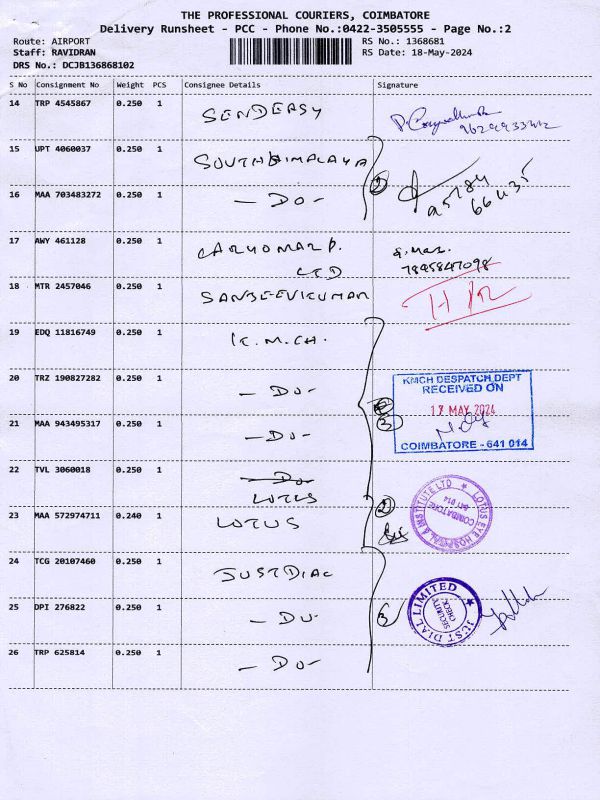 THE PROFESSIONAL COURIERS, COIMBATORE
Delivery Runsheet - PCC - Phone No.:0422-3505555 - Page No.:2
Route: AIRPORT
Staff: RAVIDRAN
DRS No.: DCJB136868102
RS No.: 1368681
RS Date: 18-May-2024
S No Consignment No Weight PCS Consignee Details Signature
14 TRP 4545867 0.250 1 SENDEASY
15 UPT 4060037 0.250 1 SOUTH HIMALAYA
16 MAA 703483272 0.250 1 - DO -
2
17 AWY 461128 0.250 1
LTD
7845847098
18 MTR 2457046 0.250 1 SANJEEVIKUMAR
19 EDQ 11816749 0.250 1 K.M.C.H.
20 TRZ 190827282 0.250 1 - DO -
21 MAA 943495317 0.250 1 - DO -
3
KMCH DESPATCH DEPT
RECEIVED ON
17 MAY 2024
COIMBATORE - 641 014
22 TVL 3060018 0.250 1 - DO -
LOTUS
23 MAA 572974711 0.240 1 LOTUS
2
LOTUS EYE HOSPITAL & INSTITUTE LTD
COIMBATORE
641 014
24 TCG 20107460 0.250 1 JUSTDIAL
25 DPI 276822 0.250 1 - DO -
3
JUST DIAL LIMITED
SECURITY
CHECK
26 TRP 625814 0.250 1 - DO -